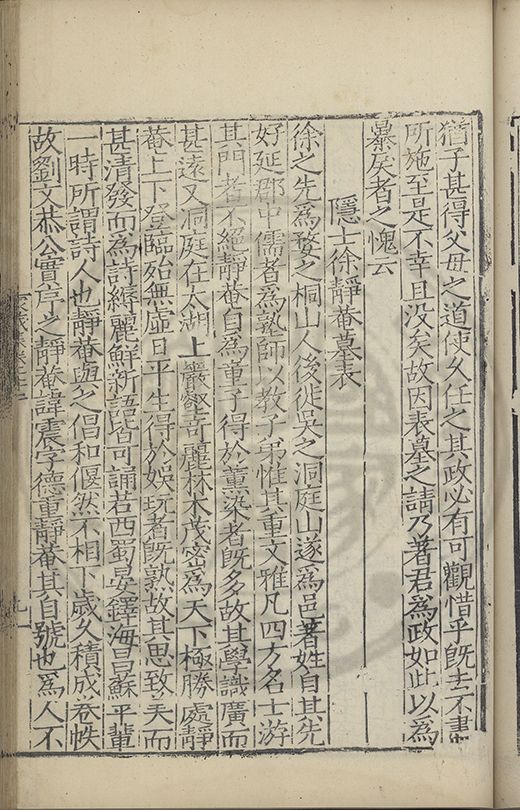 猶子甚得父母之道使久任之其政必有可觀惜乎既去不盡
所施至是不幸且没矣故因表墓之請乃著君爲政如此以爲
暴戾者之愧云
隱士徐靜菴墓表
徐之先爲婺之桐山人後徙吳之洞庭山遂爲邑著姓自其先
好延郡中儒者爲塾師以教子弟惟其重文雅凡四方名士游
其門者不絕靜菴自爲童子得於薰染者既多故其學識廣而
甚遠又洞庭在太湖上巖壑奇麗林木茂密爲天下極勝處靜
菴上下登臨始無虛日平生得於娛玩者既熟故其思致天而
甚清發而爲詩縟麗鮮新語皆可誦若西蜀晏鐸海昌蘇平輩
一時所謂詩人也靜菴與之倡和偃然不相下歲久積成卷帙
故劉文恭公實序之靜菴諱震字德重靜菴其自號也爲人不